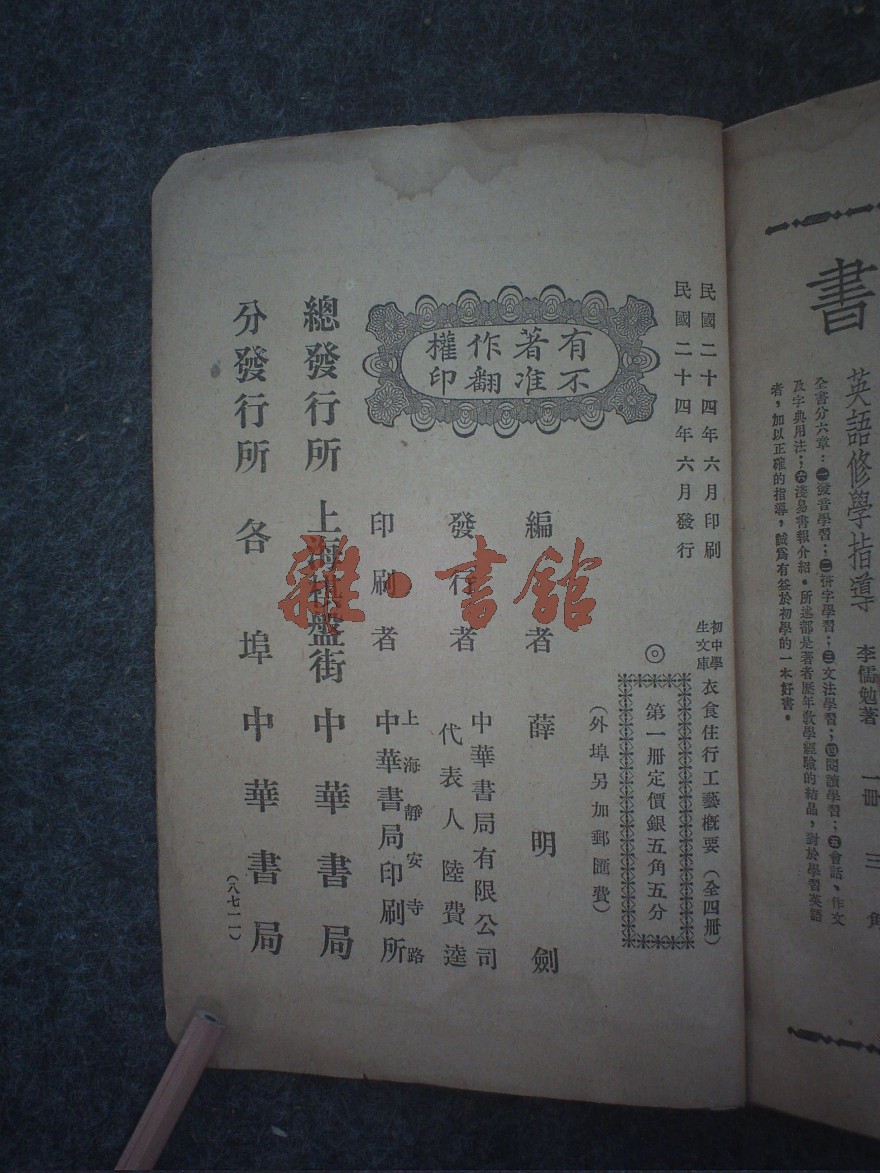 書
英語修學指導
李儒勉著
一冊 三角
全書分六章：㊀發音學習；㊁拼字學習；㊂文法學習；㊃閱讀學習；㊄會話、作文
及字典用法；㊅淺易書報介紹。所述都是著者歷年教學經驗的結晶，對於學習英語
者，加以正確的指導，誠爲有益於初學的一本好書。
民國二十四年六月印刷
民國二十四年六月發行
初中學生文庫
衣食住行工藝概要（全四冊）
◎
第一冊定價銀五角五分
（外埠另加郵匯費）
有著作權
不准翻印
編者 薛明劍
發行者 中華書局有限公司
代表人陸費逵
印刷者 上海靜安寺路
中華書局印刷所
總發行所 上海棋盤街 中華書局
分發行所 各埠中華書局
（八七一一）
雜·書館